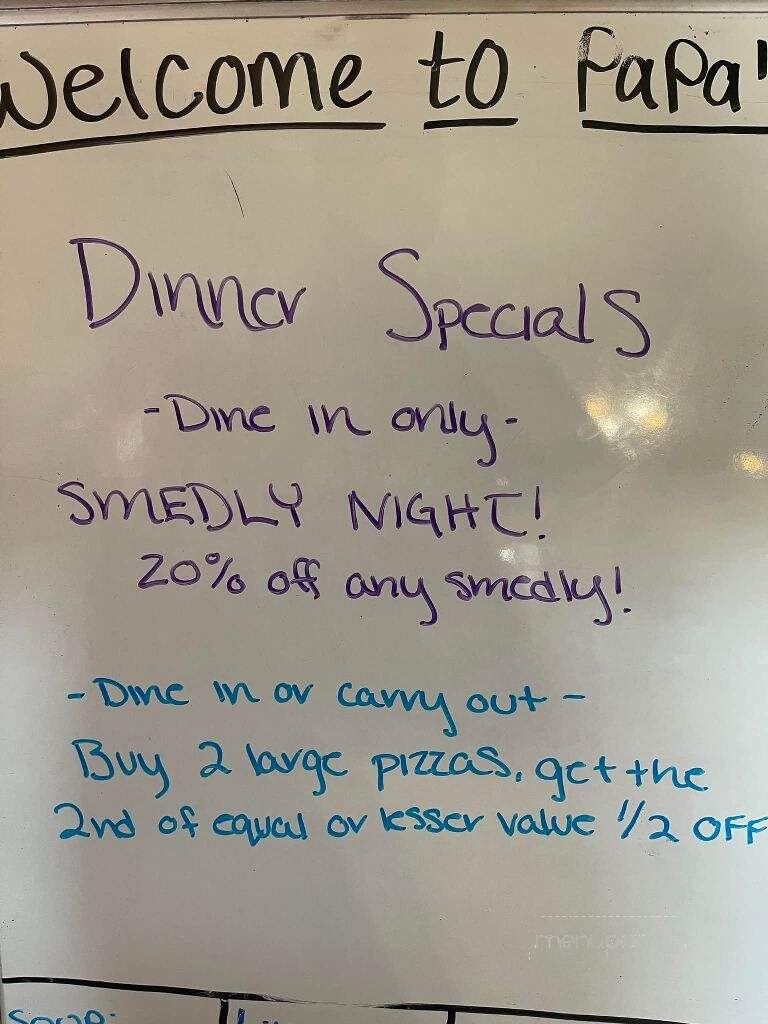 Welcome to PaPa'
Dinner Specials
-Dine in only-
SMEDLY NIGHT!
20% off any smedly!
- Dine in or carry out -
Buy 2 large pizzas, get the
2nd of equal or lesser value 1/2 OFF
Soup: